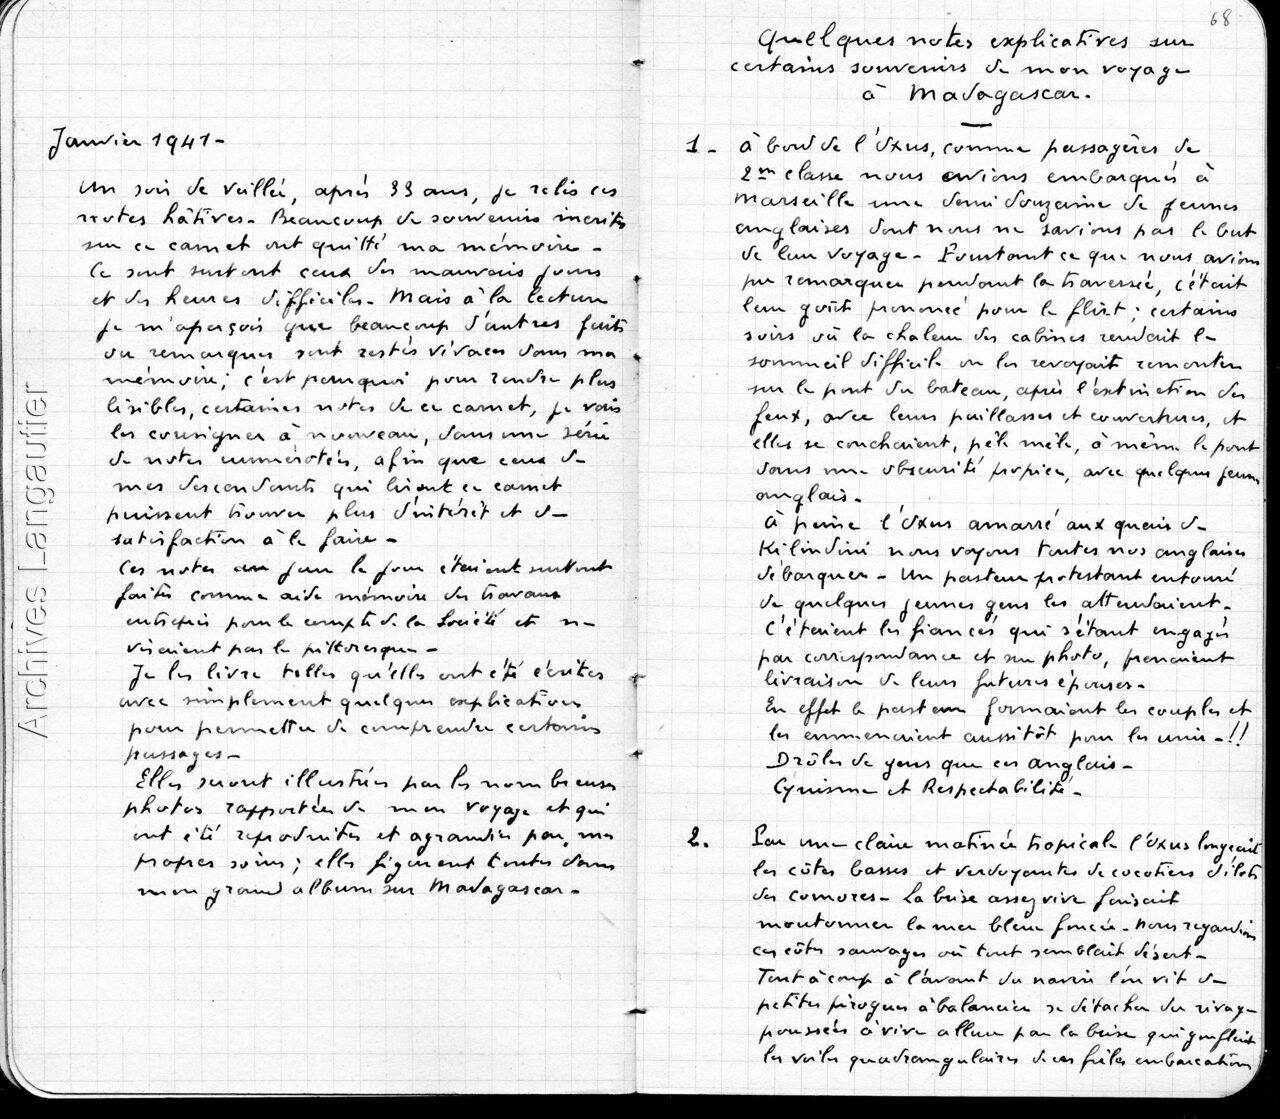 Janvier 1941-
Un soir de veillée, après 33 ans, je relis ces
notes hâtives- Beaucoup de souvenirs inscrits
sur ce carnet ont quitté ma mémoire-
Ce sont surtout ceux des mauvais jours
et des heures difficiles- Mais à la lecture
je m'aperçois que beaucoup d'autres faits
ou remarques sont restés vivaces dans ma
mémoire; c'est pourquoi pour rendre plus
lisibles, certaines notes de ce carnet, je vais
les consigner à nouveau, dans une série
de notes numérotées, afin que ceux de
mes descendants qui liront ce carnet
puissent trouver plus d'intérêt et de
satisfaction à le faire-
Ces notes au jour le jour étaient surtout
faites comme aide mémoire des travaux
entrepris pour le compte de la Société et ne
visaient pas le pittoresque-
Je les livre telles qu'elles ont été écrites
avec simplement quelques explications
pour permettre de comprendre certains
passages-
Elles seront illustrées par les nombreuses
photos rapportées de mon voyage et qui
ont été reproduites et agrandies par mes
propres soins; elles figurent toutes dans
mon grand album sur Madagascar-
Archives Langautier
68
Quelques notes explicatives sur
certains souvenirs de mon voyage
à Madagascar.
1- à bord de l'Oxus, comme passagères de
2me classe nous avions embarqués à
Marseille une demi douzaine de jeunes
anglaises dont nous ne savions pas le but
de leur voyage- Pourtant ce que nous avions
pu remarquer pendant la traversée, c'était
leur goût prononcé pour le flirt; certains
soirs où la chaleur des cabines rendait le
sommeil difficile on les voyait remonter
sur le pont du bateau, après l'extinction des
feux, avec leurs paillasses et couvertures, et
elles se couchaient, pêle mêle, à même le pont
dans une obscurité propice, avec quelques jeunes
anglais-
à peine l'Oxus amarré aux quais de
Kilindini nous voyons toutes nos anglaises
débarquer- Un pasteur protestant entouré
de quelques jeunes gens les attendaient-
C'étaient les fiancés qui s'étant engagés
par correspondance et sur photo, prenaient
livraison de leurs futures épouses-
En effet le pasteur formaient les couples et
les emmenaient aussitôt pour les unir-!!
Drôles de gens que ces anglais-
Cynisme et Respectabilité-
2. Par une claire matinée tropicale l'Oxus longeait
les côtes basses et verdoyantes de cocotiers d'îlots
des Comores- La brise assez vive faisait
moutonner la mer bleue foncée- Nous regardions
ces côtes sauvages où tout semblait désert-
Tout à coup à l'avant du navire l'on vit de
petites pirogues à balancier se détacher du rivage
poussées à vive allure par la brise qui gonflait
les voiles quadrangulaires de ces frêles embarcations